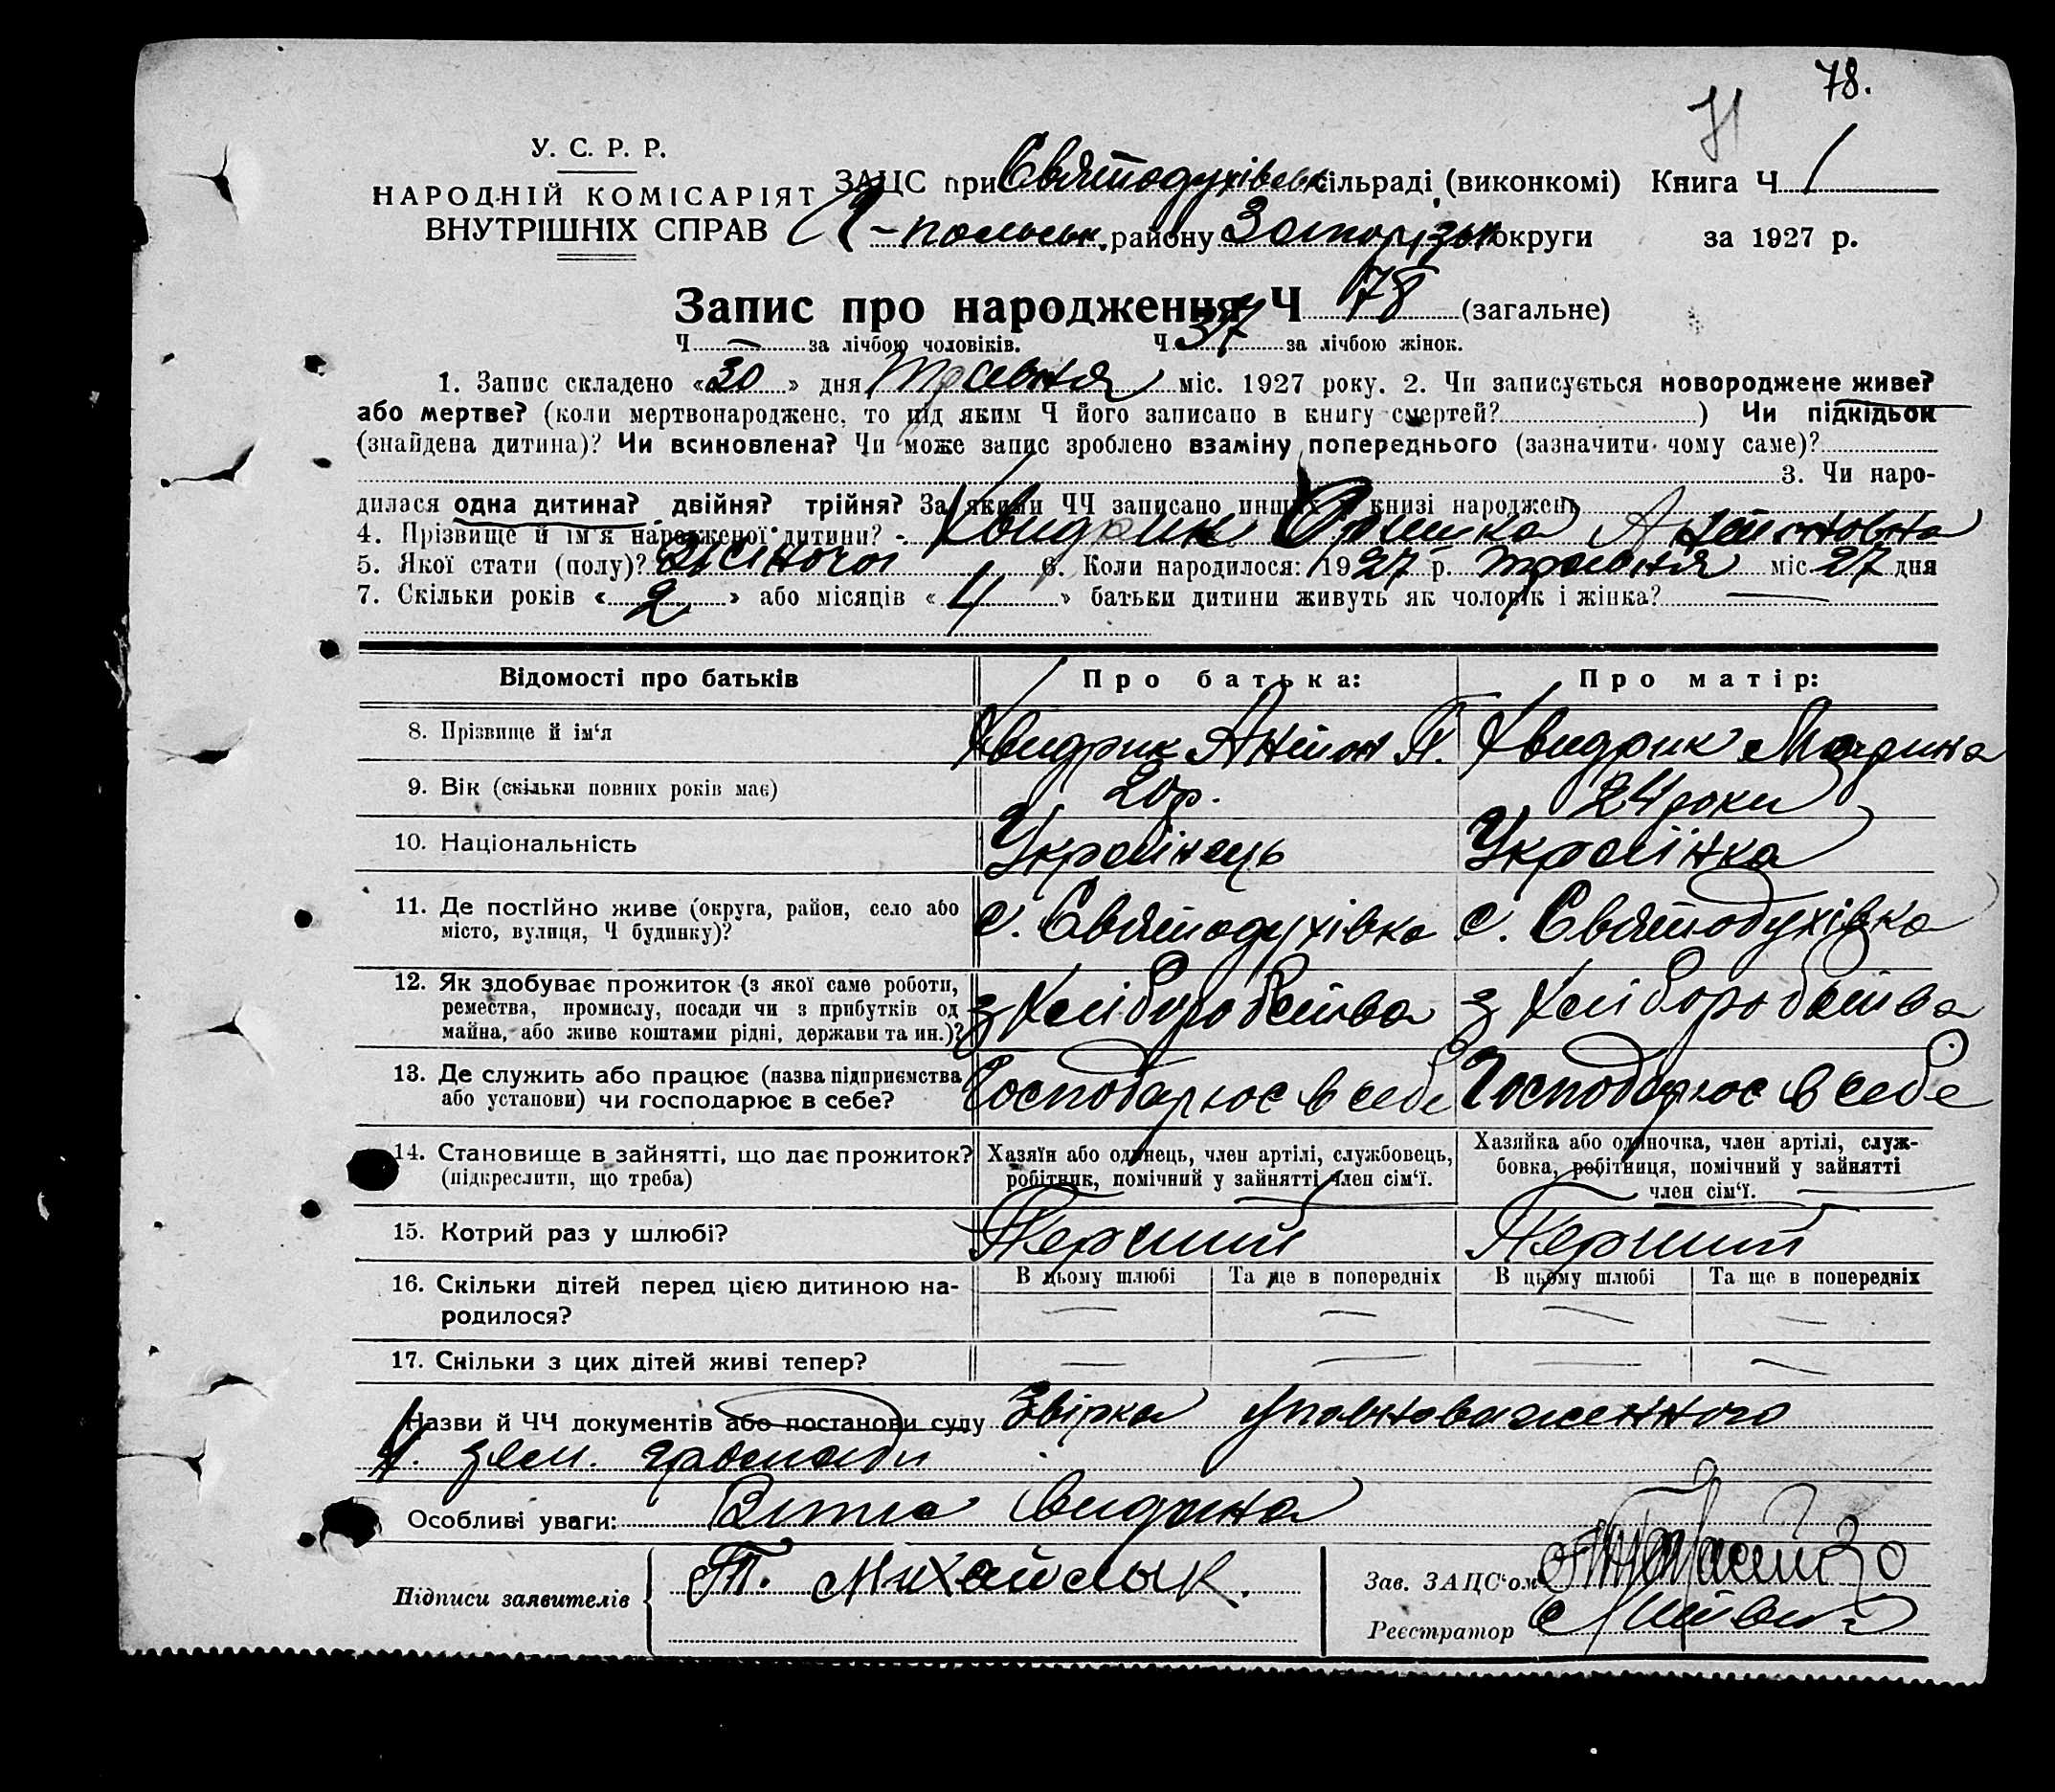 78.
71
У. С. Р. Р.
НАРОДНІЙ КОМІСАРІЯТ
ВНУТРІШНІХ СПРАВ
ЗАЦС при Святодухівськ. сільраді (виконкомі) Книга Ч. 1
-польськ. району Запорізьк. округи за 1927 р.
Запис про народження Ч 78 (загальне)
Ч — за лічбою чоловіків. Ч 37 за лічбою жінок.
1. Запис складено «30» дня травня міс. 1927 року. 2. Чи записується новороджене живе?
або мертве? (коли мертвонароджене, то під яким Ч його записано в книгу смертей? ) Чи підкідьок
(знайдена дитина)? Чи всиновлена? Чи може запис зроблено взаміну попереднього (зазначити чому саме)?
3. Чи наро-
дилася одна дитина? двійня? трійня? За якими ЧЧ записано инших у книзі народжень
4. Прізвище й ім'я народженої дитини? - Хвидрик Оришка Антоновна
5. Якої стати (полу)? Жіночої 6. Коли народилося: 1927 р. травня міс. 27 дня
7. Скільки років «2» або місяців «4» батьки дитини живуть як чоловік і жінка? —
Відомості про батьків Про батька: Про матір:
8. Прізвище й ім'я Хвидрик Антон П. Хвидрик Марина
9. Вік (скільки повних років має) 20 р. 24 роки
10. Національність Українець Українка
11. Де постійно живе (округа, район, село або с. Святодухівка с. Святодухівка
місто, вулиця, Ч будинку)?
12. Як здобуває прожиток (з якої саме роботи,
ремества, промислу, посади чи з прибутків од з Хліборобства з Хліборобства
майна, або живе коштами рідні, держави та ин.)?
13. Де служить або працює (назва підприємства Господарює в себе Господарює в себе
або установи) чи господарює в себе?
14. Становище в зайнятті, що дає прожиток? Хазяїн або одинець, член артілі, службовець, Хазяйка або одиночка, член артілі, служ-
(підкреслити, що треба) робітник, помічний у зайнятті член сім'ї. бовка, робітниця, помічний у зайнятті
член сім'ї.
15. Котрий раз у шлюбі? Перший Перший
16. Скільки дітей перед цією дитиною на- В цьому шлюбі Та ще в попередніх В цьому шлюбі Та ще в попередніх
родилося? — — — —
17. Скільки з цих дітей живі тепер? — — — —
Назви й ЧЧ документів або постанови суду Звірка уповноваженного
зем. громади
Особливі уваги: Витяг видана
Підписи заявителів Т. Михайлык. Зав. ЗАЦС'ом
Реєстратор